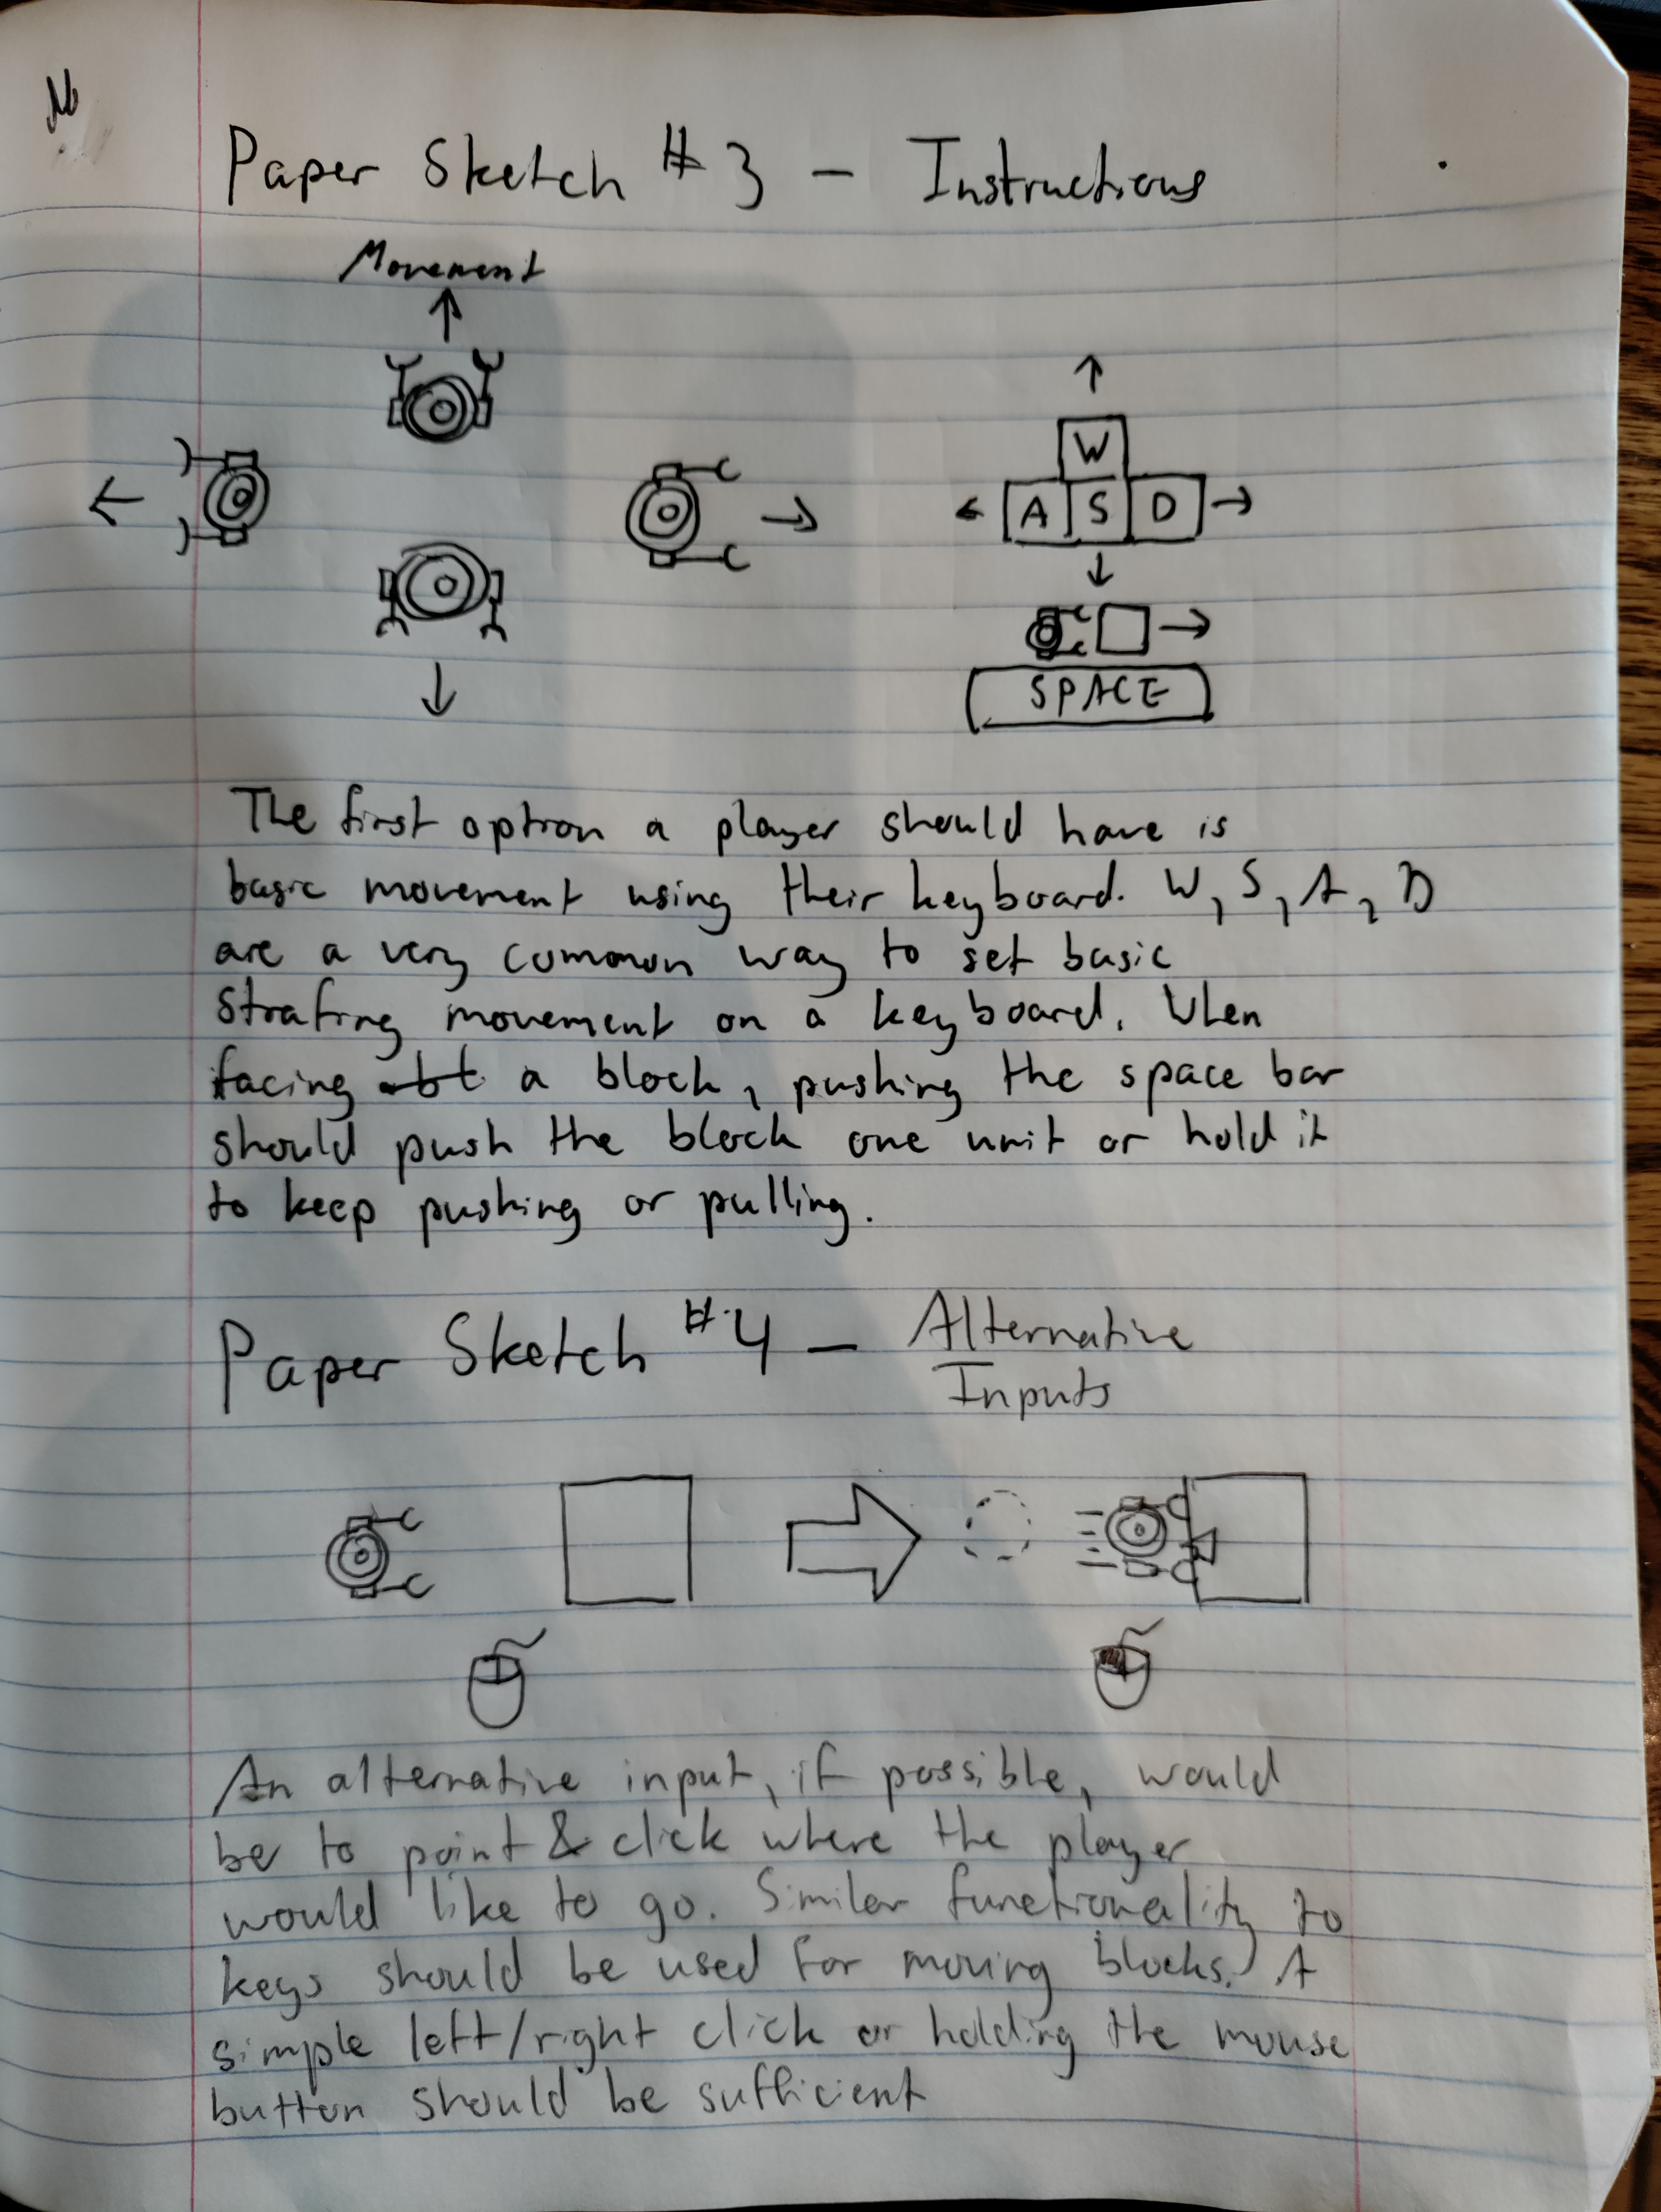 Paper Sketch #3 - Instructions
Movement
W
A S D
SPACE
The first option a player should have is
basic movement using their keyboard. W, S, A, D
are a very common way to set basic
strafing movement on a keyboard. When
facing a block, pushing the space bar
should push the block one unit or hold it
to keep pushing or pulling.
Paper Sketch #4 - Alternative
Inputs
An alternative input, if possible, would
be to point & click where the player
would like to go. Similar functionality to
keys should be used for moving blocks. A
simple left/right click or holding the mouse
button should be sufficient